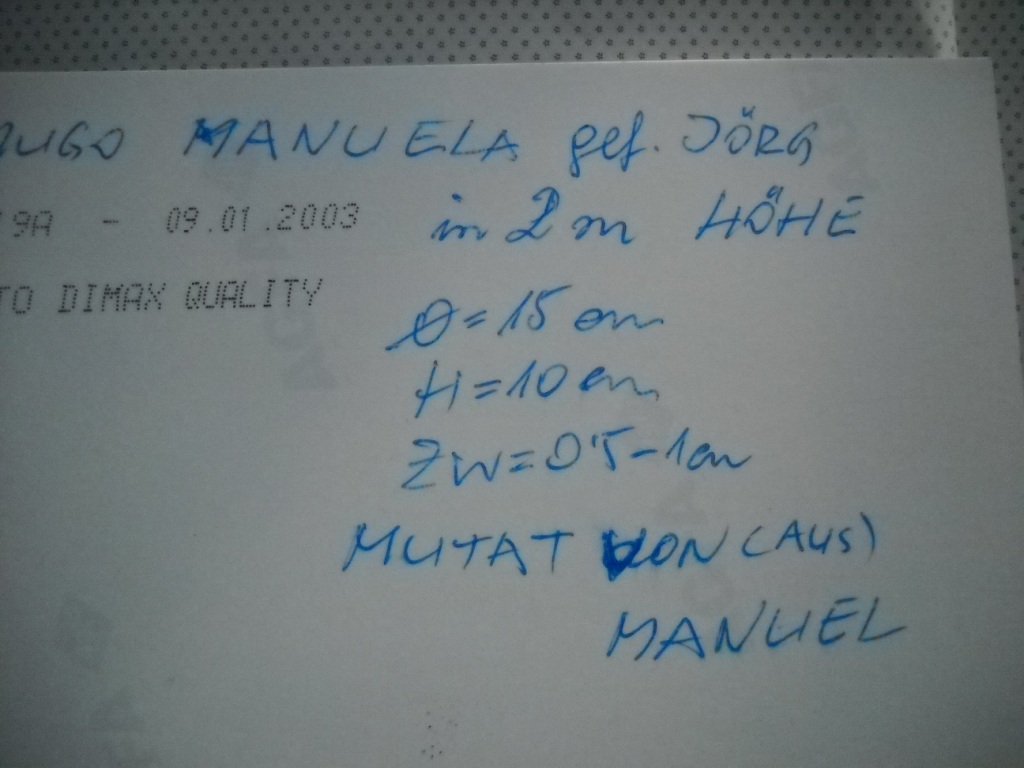 MUGO MANUELA gef. JÖRG
in 2 m HÖHE
9A - 09.01.2003
TO DIMAX QUALITY
Ø = 15 cm
H = 10 cm
ZW = 0'5 - 1 cm
MUTAT VON (AUS)
MANUEL